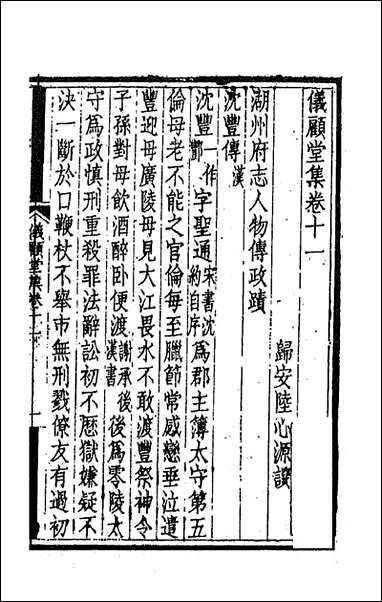 儀顧堂集卷十一
歸安陸心源譔
湖州府志人物傳政蹟
沈豐傳漢
沈豐一作酆字聖通宋書沈約自序爲郡主簿太守第五
倫母老不能之官倫每至臘節常感戀垂泣遣
豐迎母廣陵母見大江畏水不敢渡豐祭神令
子孫對母飲酒醉臥便渡謝承後漢書後爲零陵太
守爲政慎刑重殺罪法辭訟初不厯獄嫌疑不
決一斷於口鞭杖不舉市無刑戮僚友有過初
儀顧堂集卷十一
一